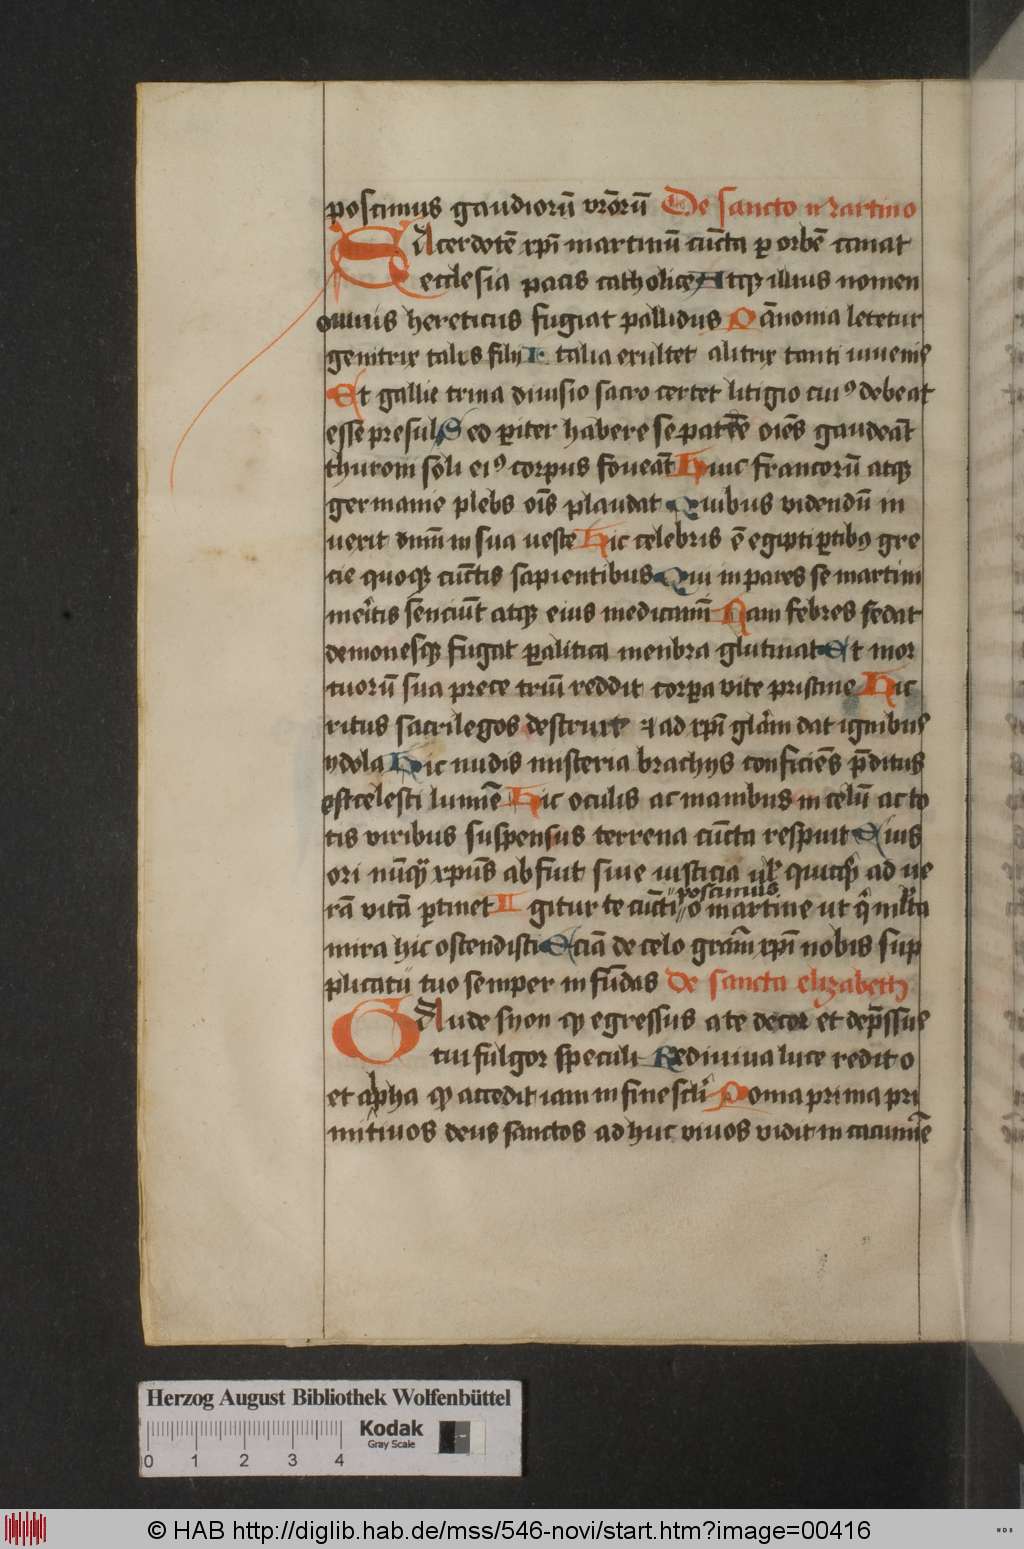 poscimus gaudiorū vr̄orū De sancto Martino
SAcerdotē xp̄i martinū cūcta ꝑ orbē canat
ecclesia pacis catholice Atqꝫ illius nomen
omnis hereticus fugiat pallidus Pānonia letetur
genitrix talis filij Italia exultet alitrix tanti iuuenis
Et gallie trina diuisio sacro certet litigio cuiꝰ debeat
esse presul Sed ꝑiter habere se patrē oīes gaudeāt
thuroni soli eiꝰ corpus foueāt Huic francorū atqꝫ
germanie plebs oīs plaudat Quibus videndū in
uerit dn̄m in sua ueste Hic celebris ē egipti ꝑtibꝫ gre
cie quoqꝫ cūctis sapientibus Qui inpares se martini
meritis senciūt atqꝫ eius medicamī Nam febres sedat
demonesqꝫ fugat ꝑalitica menbra glutinat Et mor
tuorū sua prece triū reddit corpora vite pristine Hic
ritus sacrilegos destruxt & ad xp̄i glām dat ignibus
ydola Hic nudis misteria brachijs conficiēs p̄ditus
est celesti lumīe Hic oculis ac manibus in celū ac to
tis viribus suspensus terrena cūcta respuit Eius
ori nūqꝫ xp̄us abfuit siue iusticia ul' quicqꝫ ad ue
rā vitā ꝑtinet Igitur te cūcti
poscimus
o martine ut q̄ mlta
mira hic ostendisti Eciā de celo grām xp̄i nobis sup
plicatu tuo semper infūdas De sancta elizabeth
GAude syon qꝫ egressus a te decor et dep̄ssus
tui fulgor speculi Rediuiua luce redit o
et alpha qꝫ accedit iam in fine scl̄i Poma prima pri
mitiuos deus sanctos adhuc viuos vidit in cacumīe
Herzog August Bibliothek Wolfenbüttel
Kodak
Gray Scale
0 1 2 3 4
© HAB http://diglib.hab.de/mss/546-novi/start.htm?image=00416